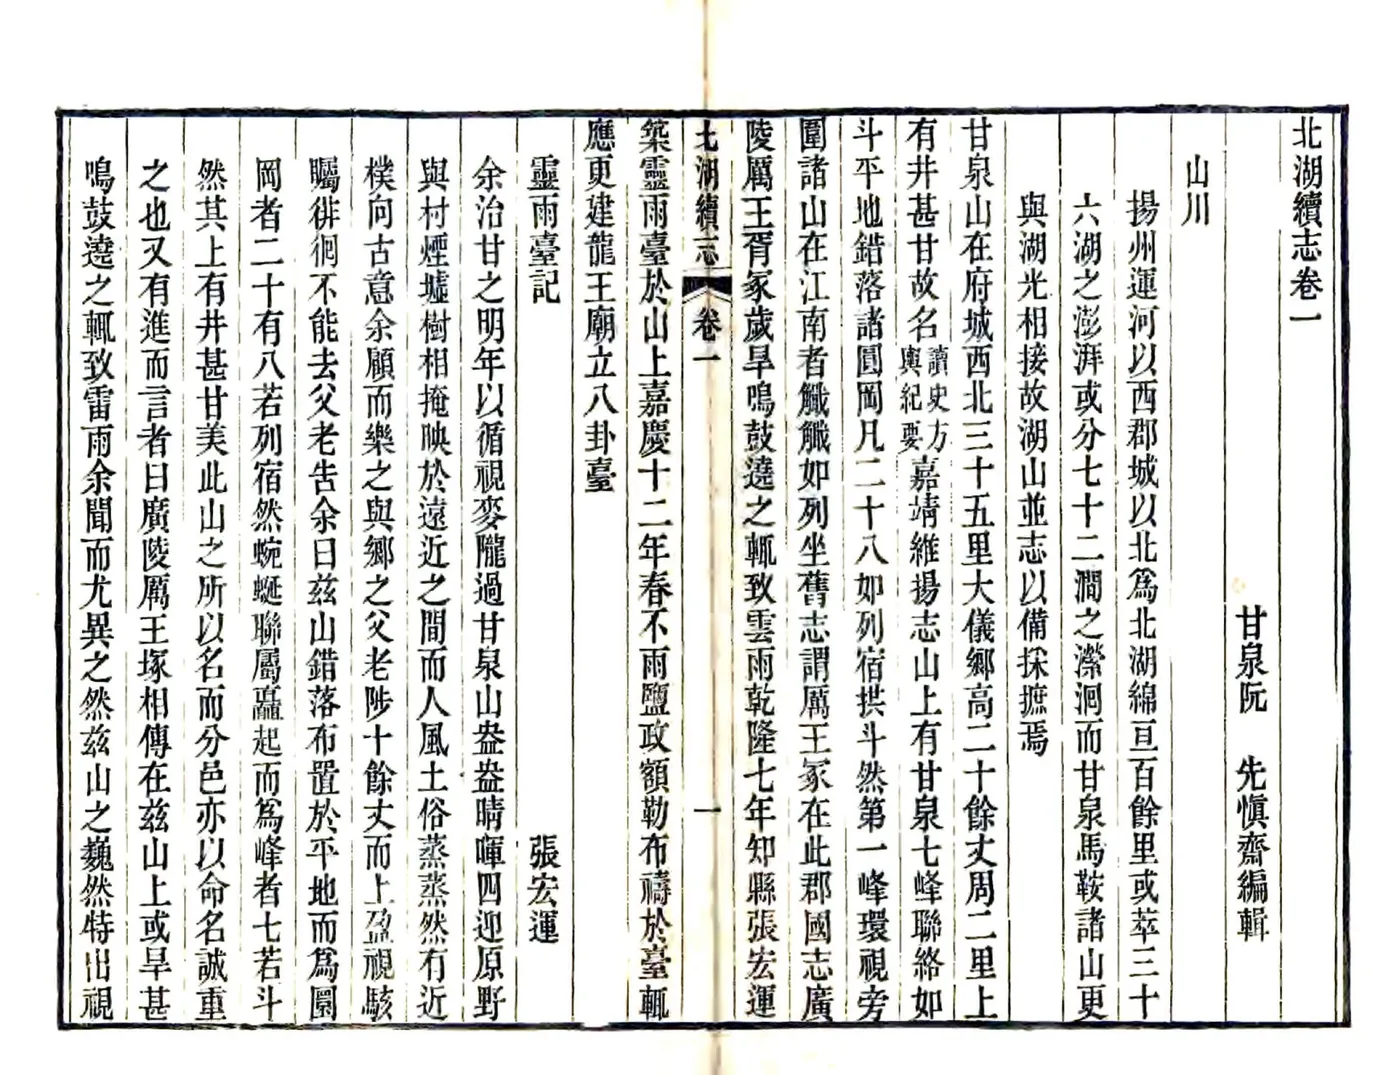 北湖續志卷一
甘泉阮　先愼齋編輯
山川
揚州運河以西郡城以北爲北湖綿亘百餘里或萃三十
六湖之澎湃或分七十二澗之瀠洄而甘泉馬鞍諸山更
與湖光相接故湖山並志以備採摭焉
甘泉山在府城西北三十五里大儀鄉高二十餘丈周二里上
有井甚甘故名讀史方輿紀要嘉靖維揚志山上有甘泉七峰聯絡如
斗平地錯落諸圓岡凡二十八如列宿拱斗然第一峰環視旁
圍諸山在江南者觿觿如列坐舊志謂厲王冢在此郡國志廣
陵厲王胥冢歲旱鳴鼓遶之輒致雲雨乾隆七年知縣張宏運
北湖續志　卷一　一
築靈雨臺於山上嘉慶十二年春不雨鹽政額勒布禱於臺輒
應更建龍王廟立八卦臺
靈雨臺記　張宏運
余治甘之明年以循視麥隴過甘泉山盎盎晴暉四迎原野
與村煙墟樹相掩映於遠近之間而人風土俗蒸蒸然有近
樸向古意余顧而樂之與鄉之父老陟十餘丈而上盈視駭
矚徘徊不能去父老告余曰茲山錯落布置於平地而爲圜
岡者二十有八若列宿然蜿蜒聯屬矗起而爲峰者七若斗
然其上有井甚甘美此山之所以名而分邑亦以命名誠重
之也又有進而言者曰廣陵厲王塚相傳在茲山上或旱甚
鳴鼓遶之輒致雷雨余聞而尤異之然茲山之巍然特出視